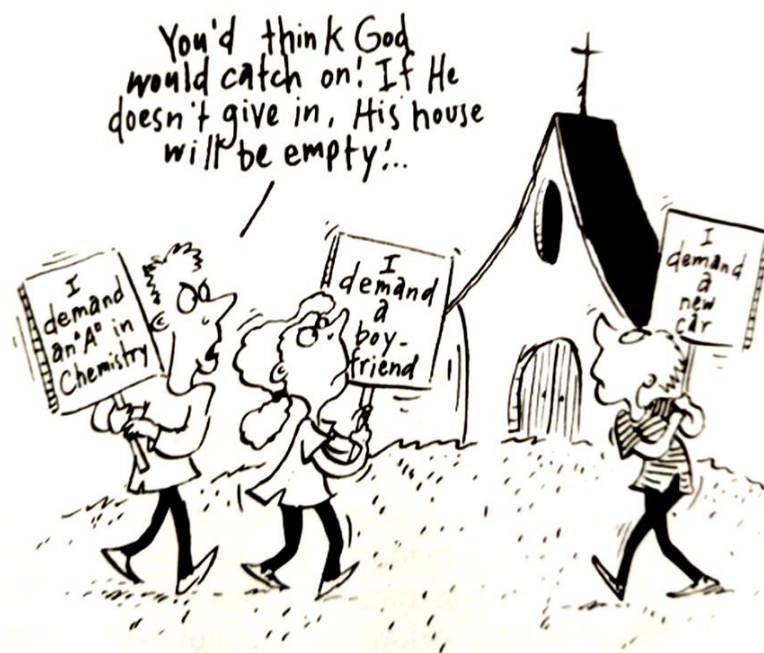 You'd think God
would catch on! If He
doesn't give in, His house
will be empty!..
I
demand
an "A" in
Chemistry
I
demand
a
boy-
friend
I
demand
a
new
car